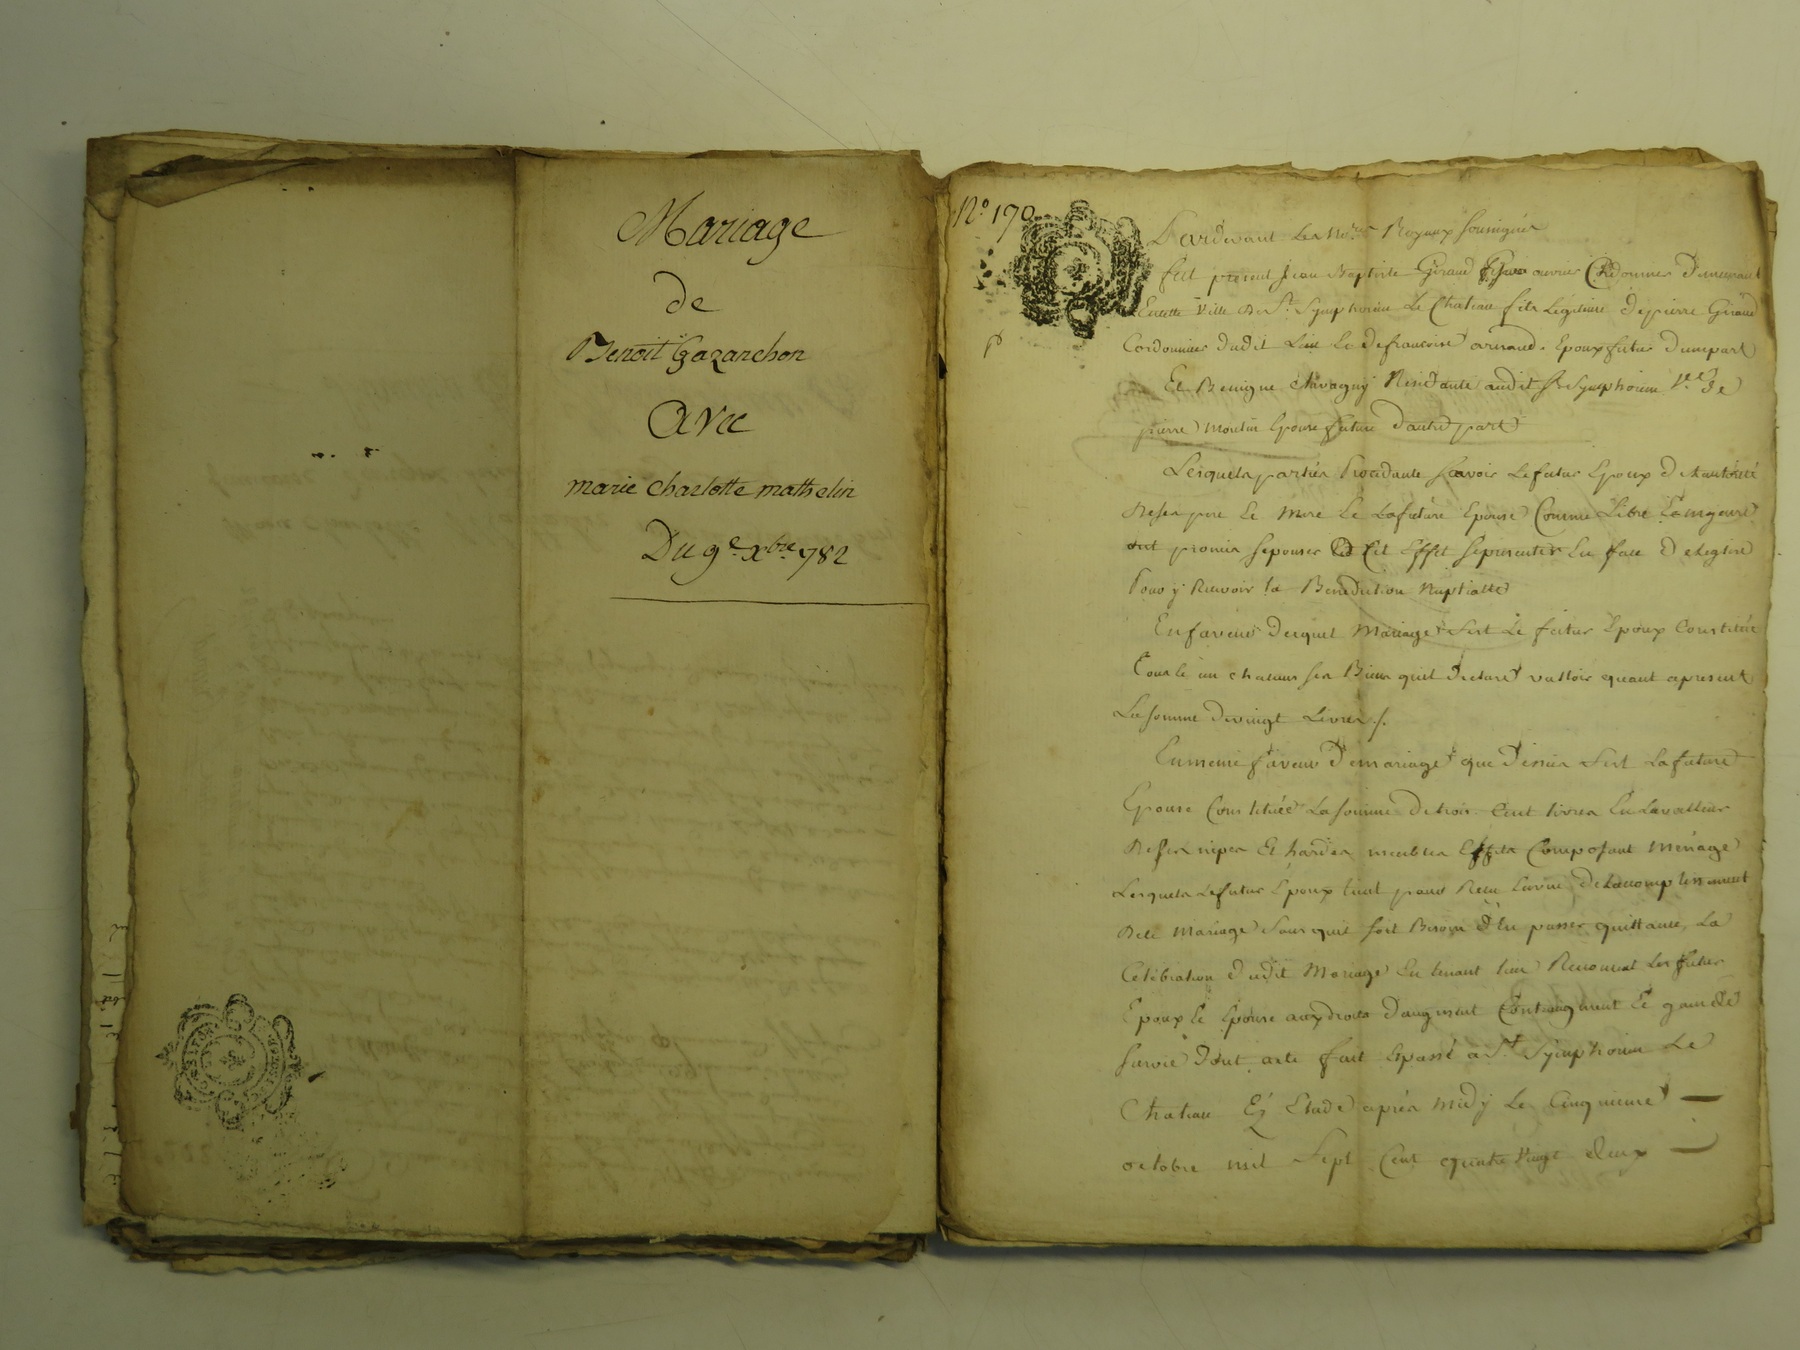 Mariage
de
Benoit Gazanchon
Avec
marie charlotte mathelin
Du 9e. Xbre. 782
No. 170
Pardevant Les No.res Royaux soussignés
fut présent Jean Baptiste Giraud ouvrier Cordonnier Demeurant
Ville de St. Symphorien Le Chateau fils Légitime de pierre Giraud
Cordonnier dudit Lieu Et de françoise arnaud. Epoux futur d'unepart
Et Benigne chavagny Residante audit St Symphorien Ve. de
pierre Moulin Epouse future d'autre part
Lesquels parties Procedante scavoir Le futur Epoux de Lautorité
De ses pere Et Mere Et La future Epouse Comme Libre
ont promis sepouser Et Cet Effet se presenter En face d eleglise
Pour y Recevoir la Benediction Nuptialle
En faveur duquel Mariage sest Le futur Epoux Constitué
tous Et un chacuns ses Biens quil declare valloir quant apresent
La somme de vingt Livres /.
En meme faveur de mariage que dessus sest La future
Epouse Constituée La somme de trois Cent Livres En La valleur
De ses nipes Et hardes meubles Effets Composant Ménage
Lesquels Le futur Epoux tient pour Recu En vue de Lacomplissement
De Ce Mariage sans quil soit Besoin d'En passer quittance, La
Celebration dudit Mariage En tenant lieu Renoncent Les futurs
Epoux Et Epouse aux droits d'augment Contraugment Et gain de
survie Dont acte fait Et passé a St. Symphorien Le
Chateau Ez Etude après midy Le Cinquieme —
octobre mil sept Cent quatre vingt deux —